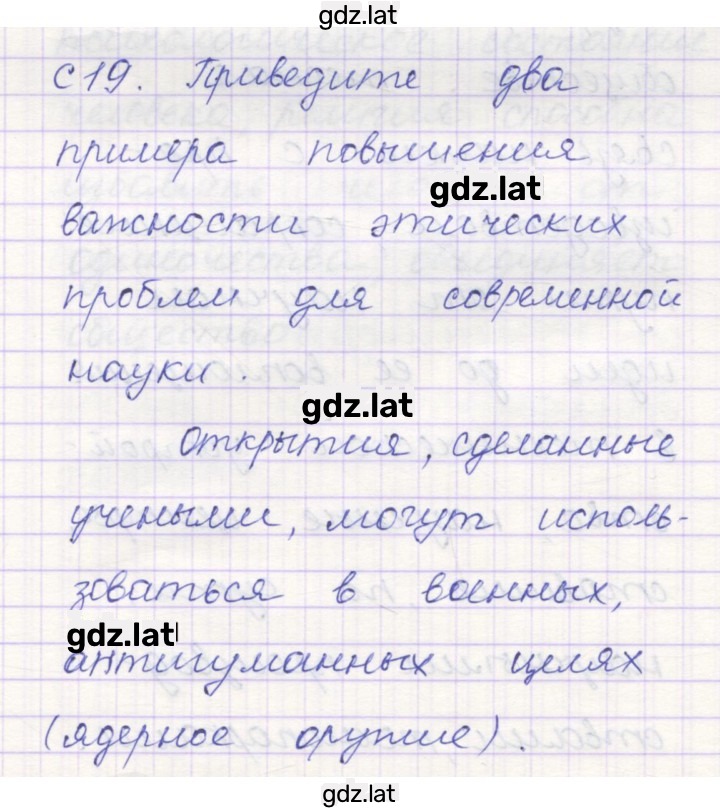 gdz.lat
С 19. Приведите два
примера повышения
gdz.lat
важности этических
проблем для современной
науки.
gdz.lat
Открытия, сделанные
учеными, могут исполь-
зоваться в военных,
gdz.lat
антигуманных целях
(ядерное оружие).
gdz.lat